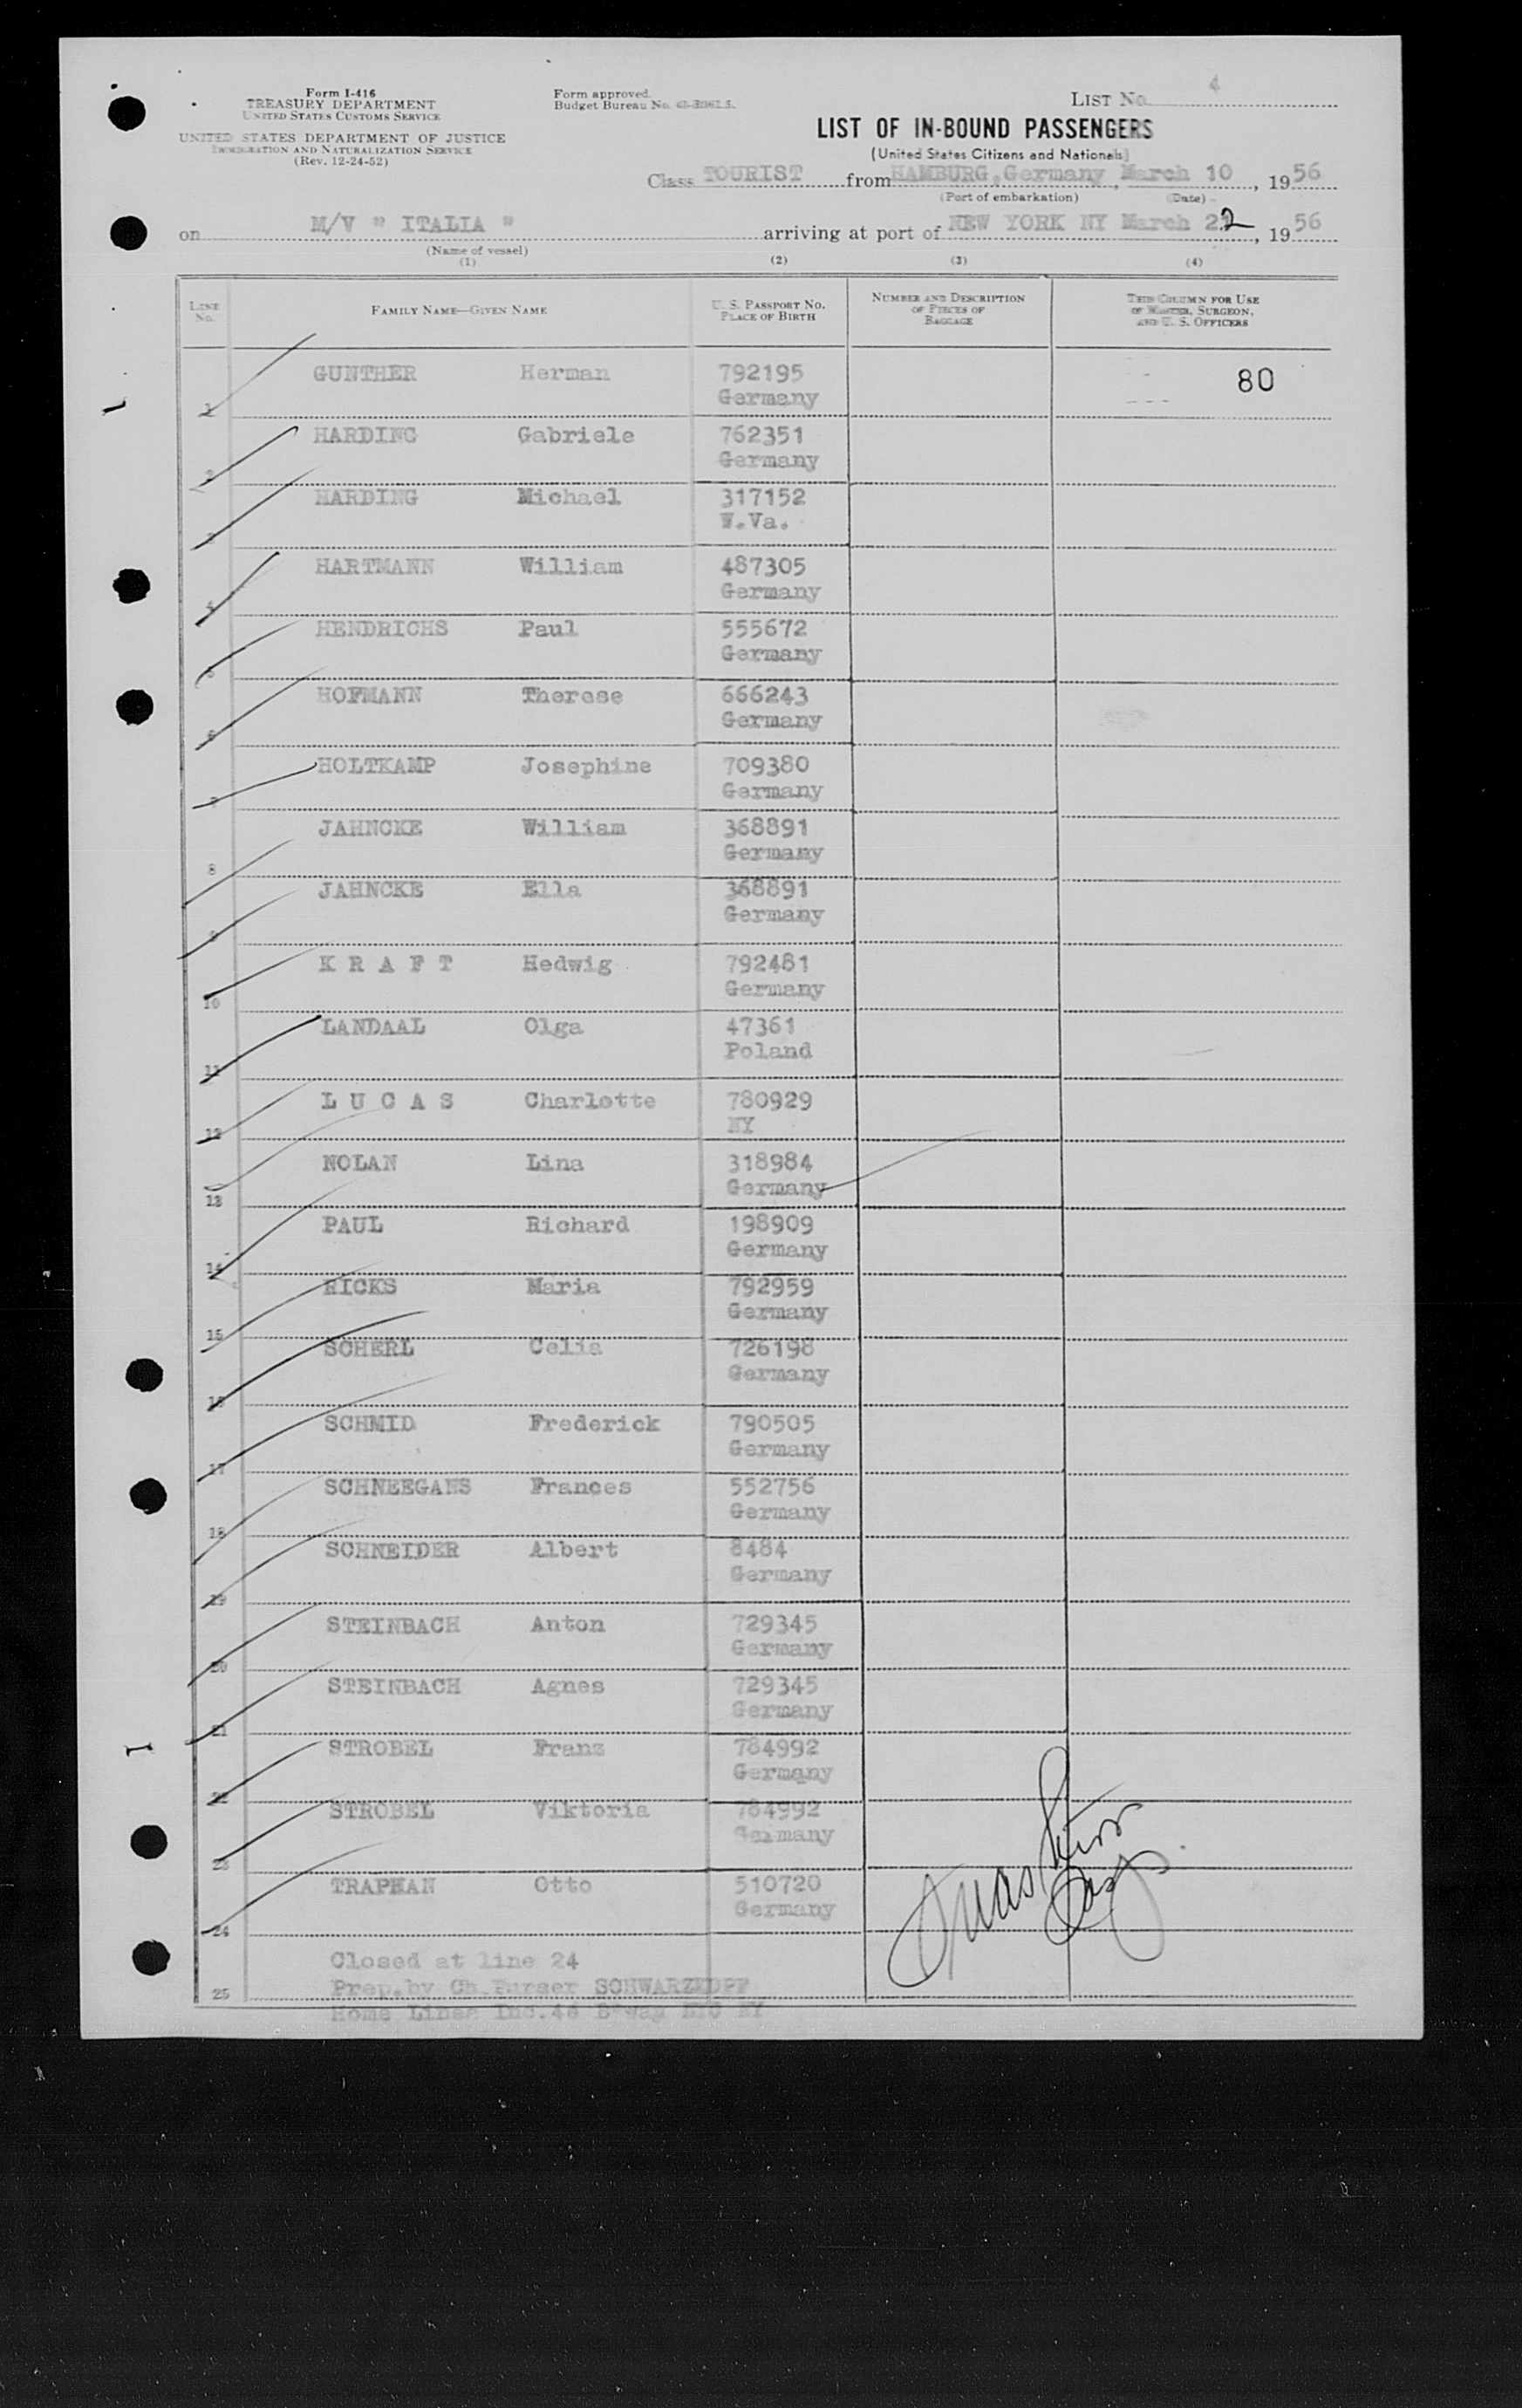 Form I-416
TREASURY DEPARTMENT
UNITED STATES CUSTOMS SERVICE
UNITED STATES DEPARTMENT OF JUSTICE
IMMIGRATION AND NATURALIZATION SERVICE
(Rev. 12-24-52)
Form approved.
Budget Bureau No.
LIST No. 4
LIST OF IN-BOUND PASSENGERS
(United States Citizens and Nationals)
Class TOURIST from HAMBURG, Germany, March 10, 1956
(Port of embarkation) (Date)
on M/V " ITALIA " arriving at port of NEW YORK NY March 22, 1956
(Name of vessel)
(1) (2) (3) (4)
LINE No. FAMILY NAME—GIVEN NAME U. S. PASSPORT No. PLACE OF BIRTH NUMBER AND DESCRIPTION OF PIECES OF BAGGAGE THIS COLUMN FOR USE OF MASTER, SURGEON, AND U. S. OFFICERS
1 GUNTHER Herman 792195 80
Germany
2 HARDING Gabriele 762351
Germany
3 HARDING Michael 317152
W.Va.
4 HARTMANN William 487305
Germany
5 HENDRICHS Paul 555672
Germany
6 HOFMANN Therese 666243
Germany
7 HOLTKAMP Josephine 709380
Germany
8 JAHNCKE William 368891
Germany
9 JAHNCKE Ella 368891
Germany
10 K R A F T Hedwig 792481
Germany
11 LANDAAL Olga 47361
Poland
12 L U C A S Charlotte 780929
NY
13 NOLAN Lina 318984
Germany
14 PAUL Richard 198909
Germany
15 RICKS Maria 792959
Germany
16 SCHERL Celia 726198
Germany
17 SCHMID Frederick 790505
Germany
18 SCHNEEGANS Frances 552756
Germany
19 SCHNEIDER Albert 8484
Germany
20 STEINBACH Anton 729345
Germany
21 STEINBACH Agnes 729345
Germany
22 STROBEL Franz 784992
Germany
23 STROBEL Viktoria 784992
Germany
24 TRAPHAN Otto 510720
Germany
Closed at line 24
25 Prep.by Ch.Purser SCHWARZKOPF
Home Lines Inc.46 B'way NYC NY